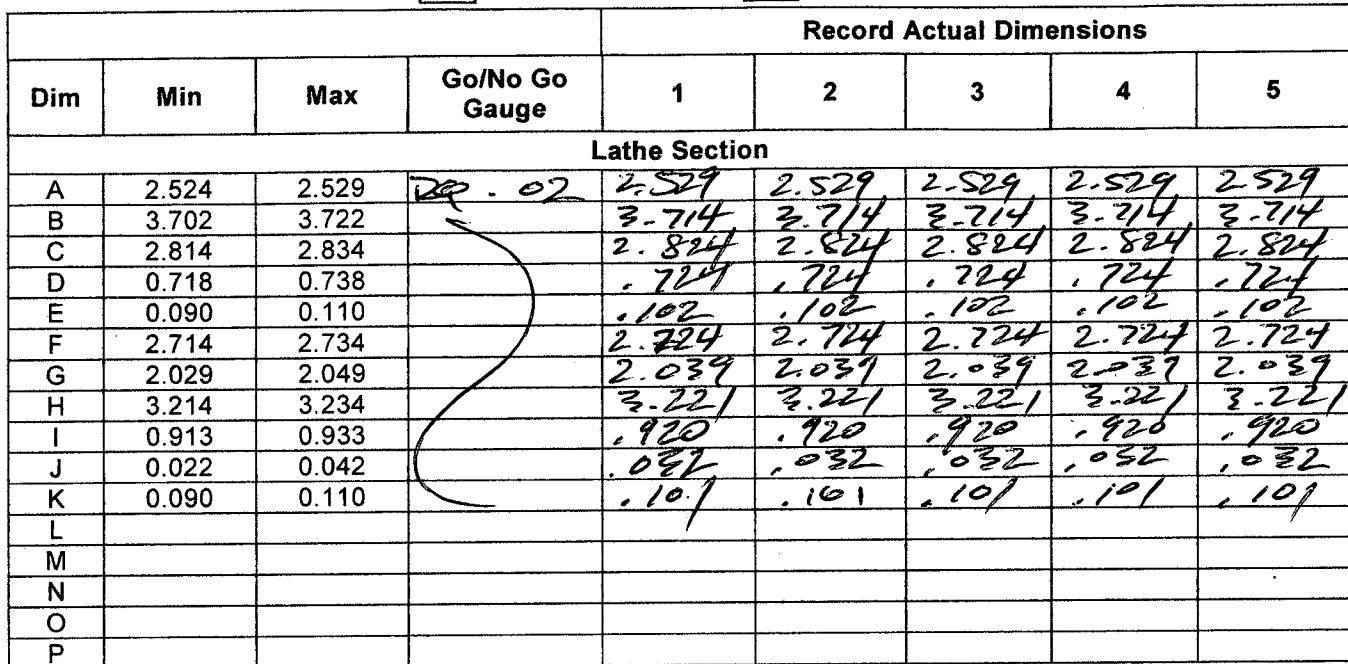 Record Actual Dimensions
Dim Min Max Go/No Go Gauge 1 2 3 4 5
Lathe Section
A 2.524 2.529 . 02 2.529 2.529 2.529 2.529 2.529
B 3.702 3.722 3.714 3.714 3.714 3.714 3.714
C 2.814 2.834 2.824 2.824 2.824 2.824 2.824
D 0.718 0.738 .724 .724 .724 .724 .724
E 0.090 0.110 .102 .102 .102 .102 .102
F 2.714 2.734 2.724 2.724 2.724 2.724 2.724
G 2.029 2.049 2.039 2.039 2.039 2.039 2.039
H 3.214 3.234 3.221 3.221 3.221 3.221 3.221
I 0.913 0.933 .920 .920 .920 .920 .920
J 0.022 0.042 .032 .032 .032 .032 .032
K 0.090 0.110 .101 .101 .101 .101 .101
L
M
N
O
P